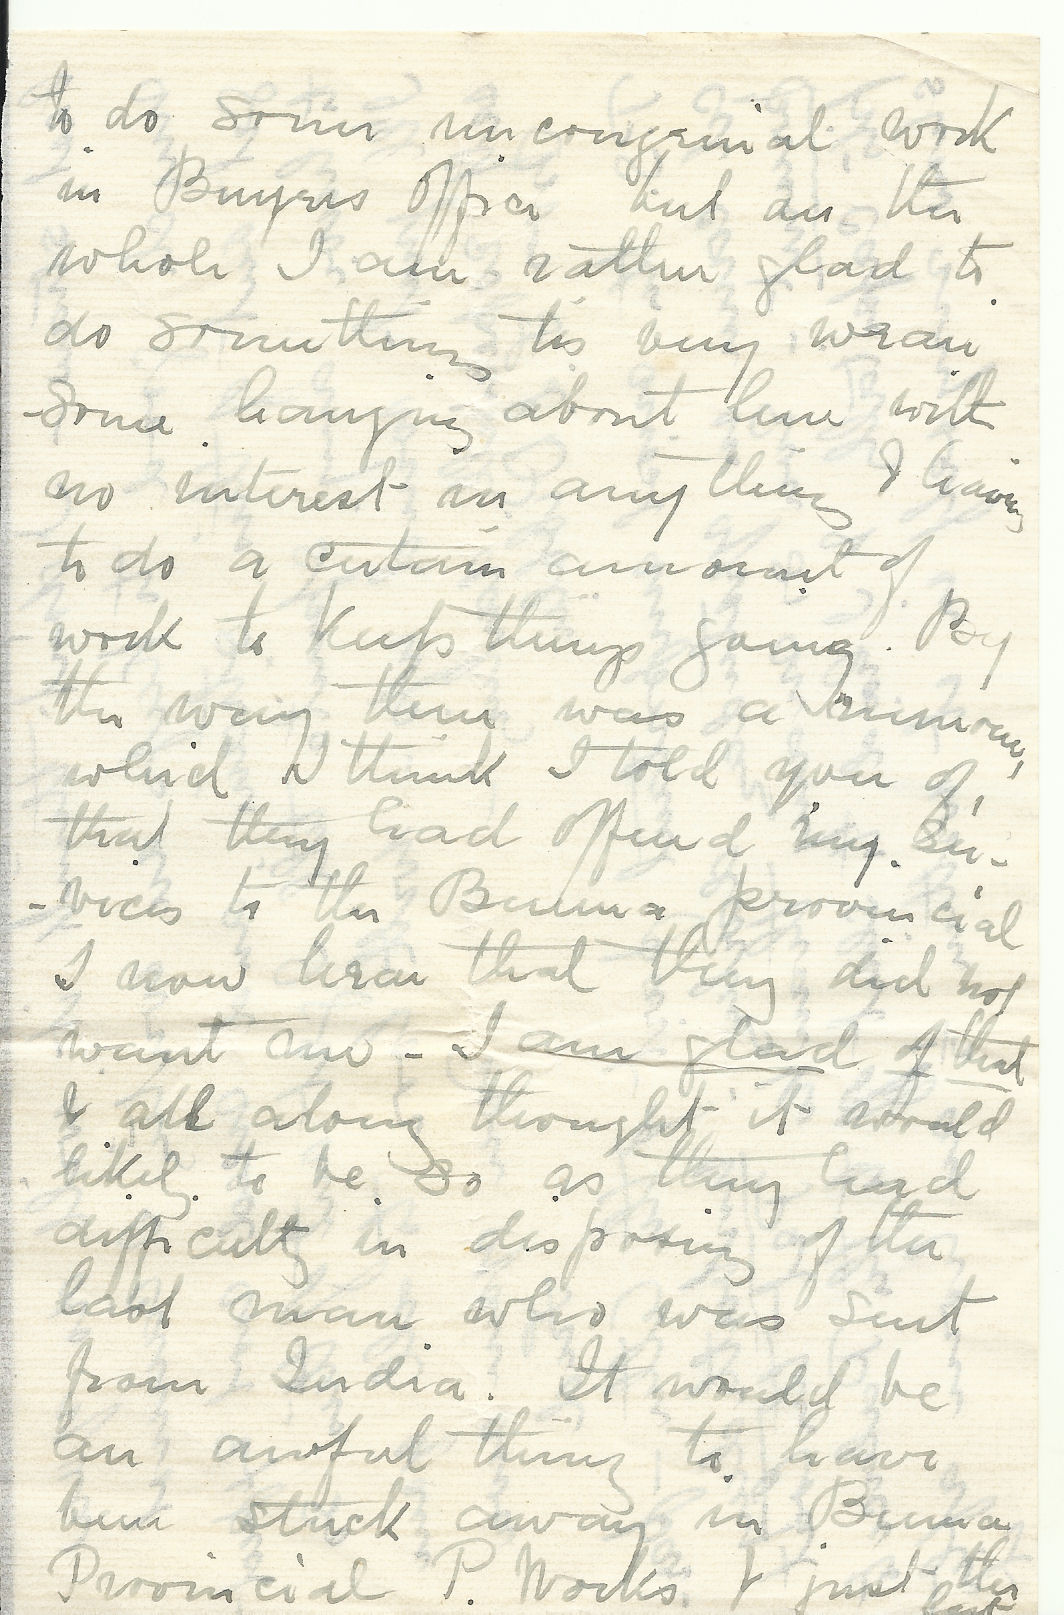 to do some uncongenial work
in Office but on the
whole I am rather glad to
do something tis very weari
-some hanging about here with
no interest in anything & having
to do a certain amount of
work to keep things going. By
the way there was a rumour,
which I think I told you of,
that they had offered my ser-
-vices to the Burma provincial
I now hear that they did not
want me - I am glad of that
& all along thought it would
likely to be so as they had
difficulty in disposing of the
last man who was sent
from India. It would be
an awful thing to have
been stuck away in Burma
Provincial P. Works & just the
last